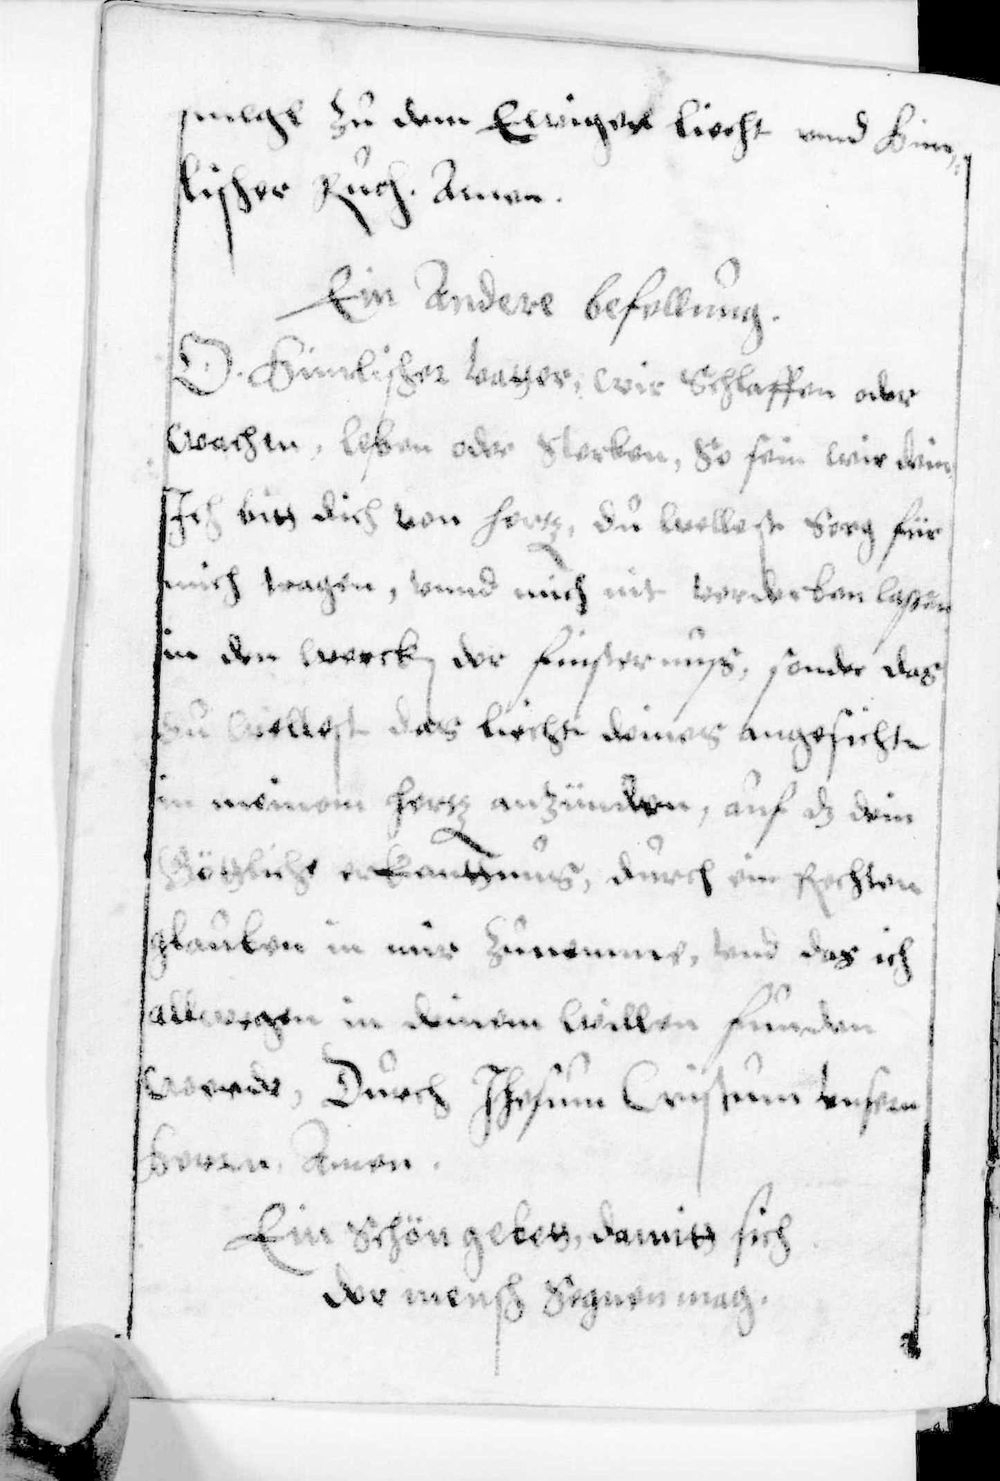 muege zu dem Ewigen liecht vnnd Him-
lischer Ruch. Amen.
Ein Andere befellung.
O. Himlischer Vatter, wir Schlaffen oder
wachen, leben oder Sterben, So sein wir dein,
Ich bitt dich von hertz, du wellest Sorg für
mich tragen, vnnd mich nit verderben lassen
in den werck der finsternuss, sonder das
du wellest das liecht deines angesichts
in meinem hertz anzünden, auf dz dein
Göttliche erkantnus, durch ein Rechten
glauben in mir zunemme, vnd das ich
allwegen in deinem willen funden
werde, Durch Jhesum Cristum vnsern
Herrn, Amen.
Ein Schön gebett, damitt sich
der mensch Segnen mag.